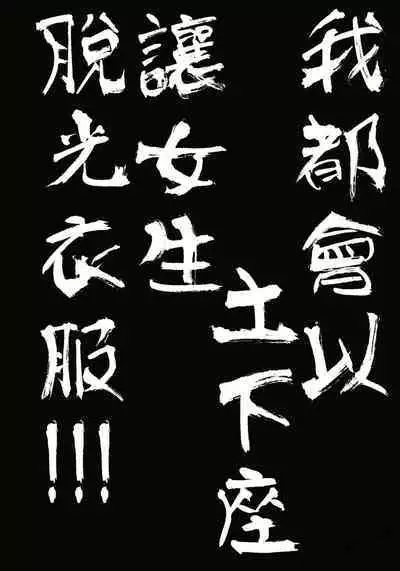 我都會以
土下座
讓女生
脫光衣服!!!